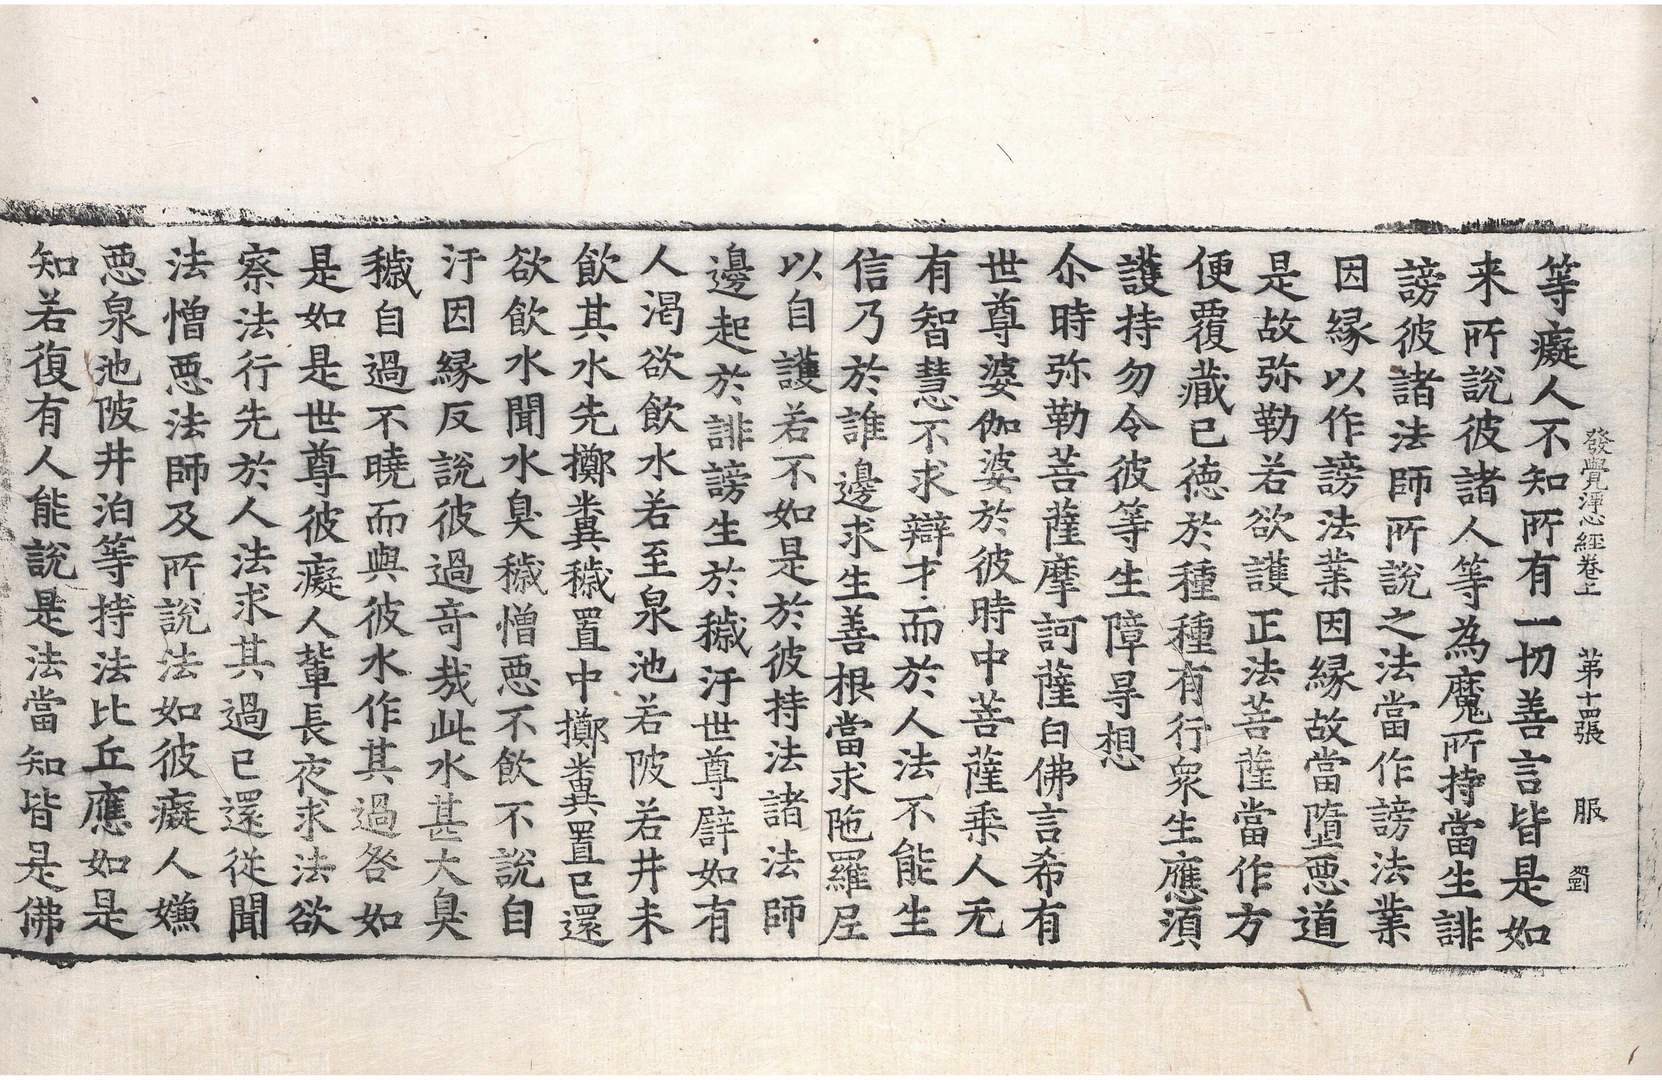 發覺淨心經卷上 第十四張 服 劉
等癡人不知所有一切善言皆是如
来所説彼諸人等為魔所持當生誹
謗彼諸法師所説之法當作謗法業
因縁以作謗法業因縁故當墮惡道
是故弥勒若欲護正法菩薩當作方
便覆藏已德於種種有行衆生應須
護持勿令彼等生障㝵想
尒時弥勒菩薩摩訶薩白佛言希有
世尊婆伽婆於彼時中菩薩乘人无
有智慧不求辯才而於人法不能生
信乃於誰邊求生善根當求陁羅尼
以自護若不如是於彼持法諸法師
邊起於誹謗生於穢汙世尊譬如有
人渴欲飲水若至泉池若陂若井未
飲其水先擲糞穢置中擲糞置已還
欲飲水聞水臭穢憎惡不飲不説自
汙因縁反説彼過奇哉此水甚大臭
穢自過不曉而與彼水作其過咎如
是如是世尊彼癡人輩長夜求法欲
察法行先於人法求其過已還從聞
法憎惡法師及所説法如彼癡人嫌
惡泉池陂井泊等持法比丘應如是
知若復有人能説是法當知皆是佛